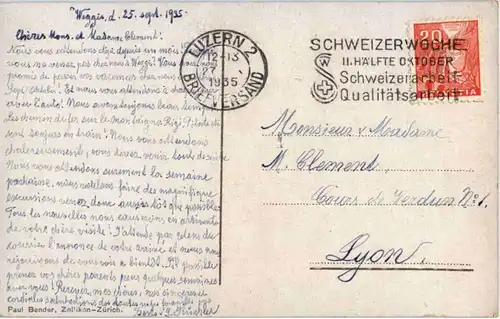 Weggis, d. 25. sept. 1935.
Chères Mons. et Madame Clement!
Nous vous attendons déjà depuis
vous ne venez pas chez nous à Weggis! Vous
promis de passer vos vacances chez nous
Et nous vous attendons à
avec l'auto! Nous avons toujours beau
Les chemins de fer sur les montaignes Rigi, Pilate
sont toujours en train! Nous vous attendons
chaleureusement, vous devez venir tout de suite
Nous vous attendons surement la semaine
prochaine, nous voulons faire des magnifique
excursions venez donc aussi tôt que possible
Tous les nouvelles nous causerons
de votre chère visite! J'attends par
courrier l'annonce de votre arrivé et nous nous
réjouissons de vous voir bientôt. Si possible
prenez vos chères parents pour quelques semaines
chez nous! Recevez, mes chères, nos sincères
cordiales salutations de
Paul Bender, Zollikon-Zürich.
LUZERN 2
12-13
1935
BRIEFVERSAND
SCHWEIZERWOCHE
II. HÄLFTE OKTOBER
Schweizerarbeit
Qualitätsarbeit
20
HELVETIA
Monsieur & Madame
M. Clement,
Cours de Verdun No 1.
Lyon.